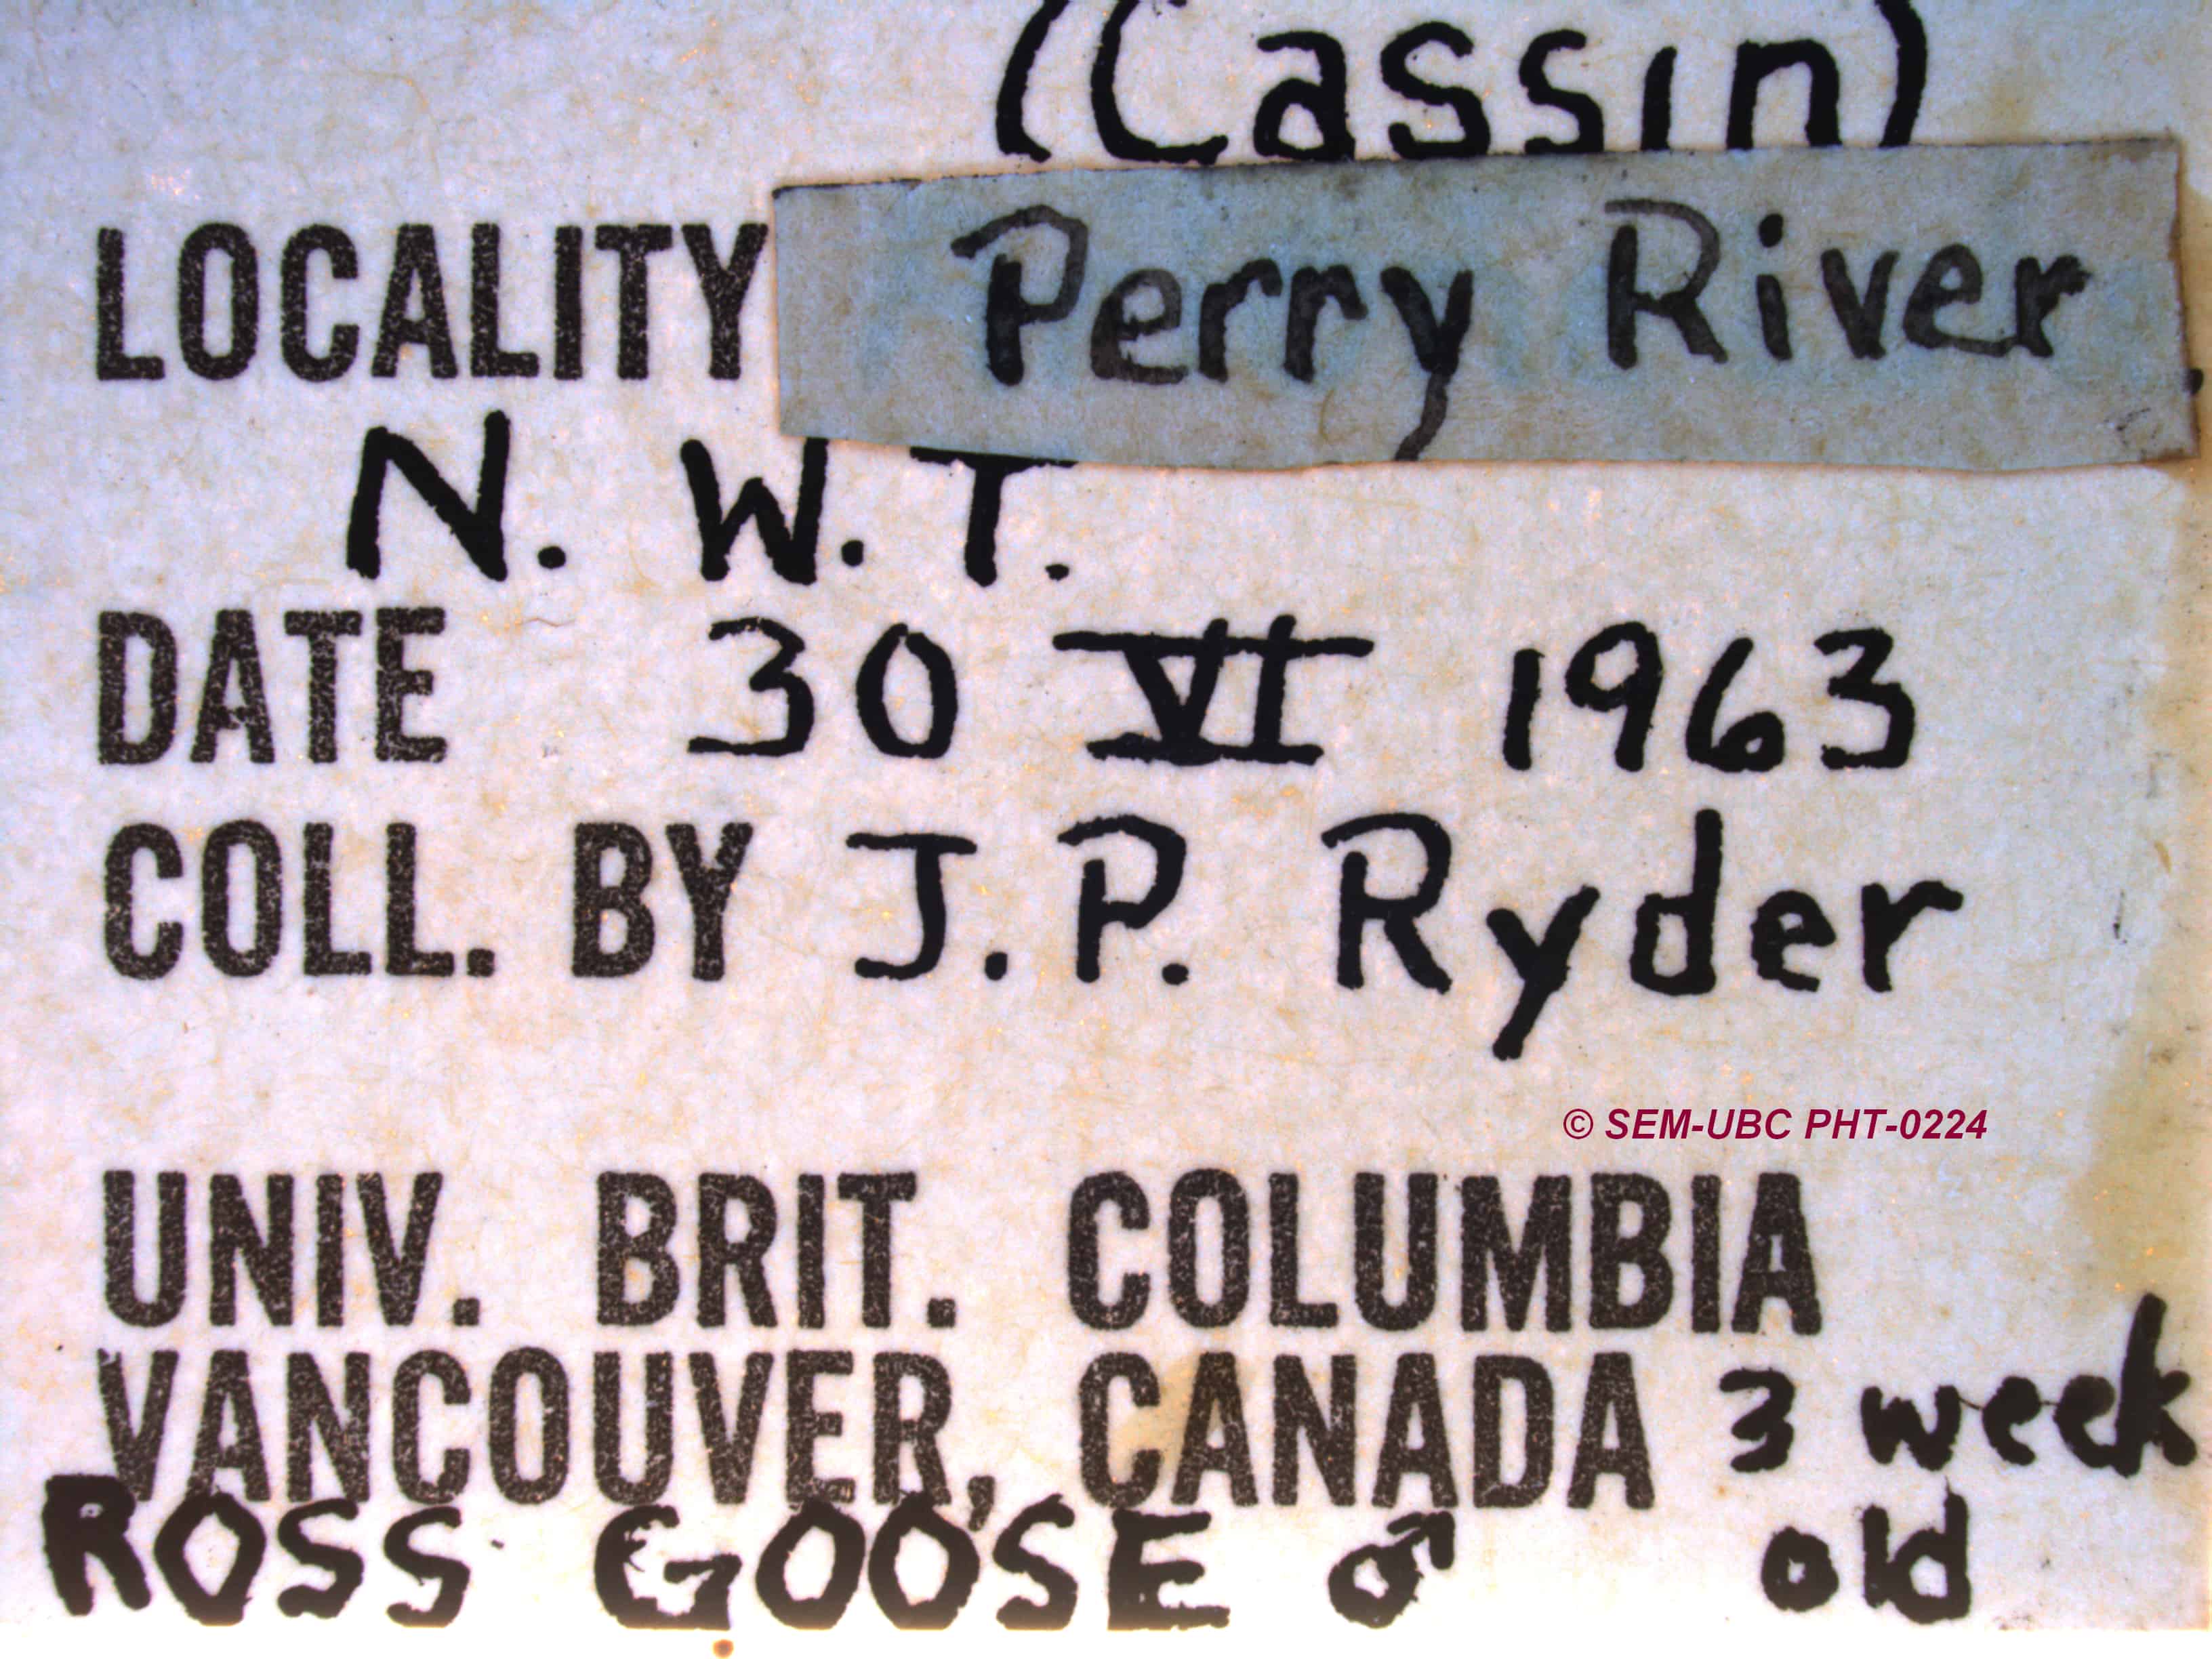 (Cassin)
LOCALITY Perry River
N. W. T.
DATE 30 VI 1963
COLL. BY J. P. Ryder
© SEM-UBC PHT-0224
UNIV. BRIT. COLUMBIA
VANCOUVER, CANADA 3 week
ROSS GOOSE ♂ old